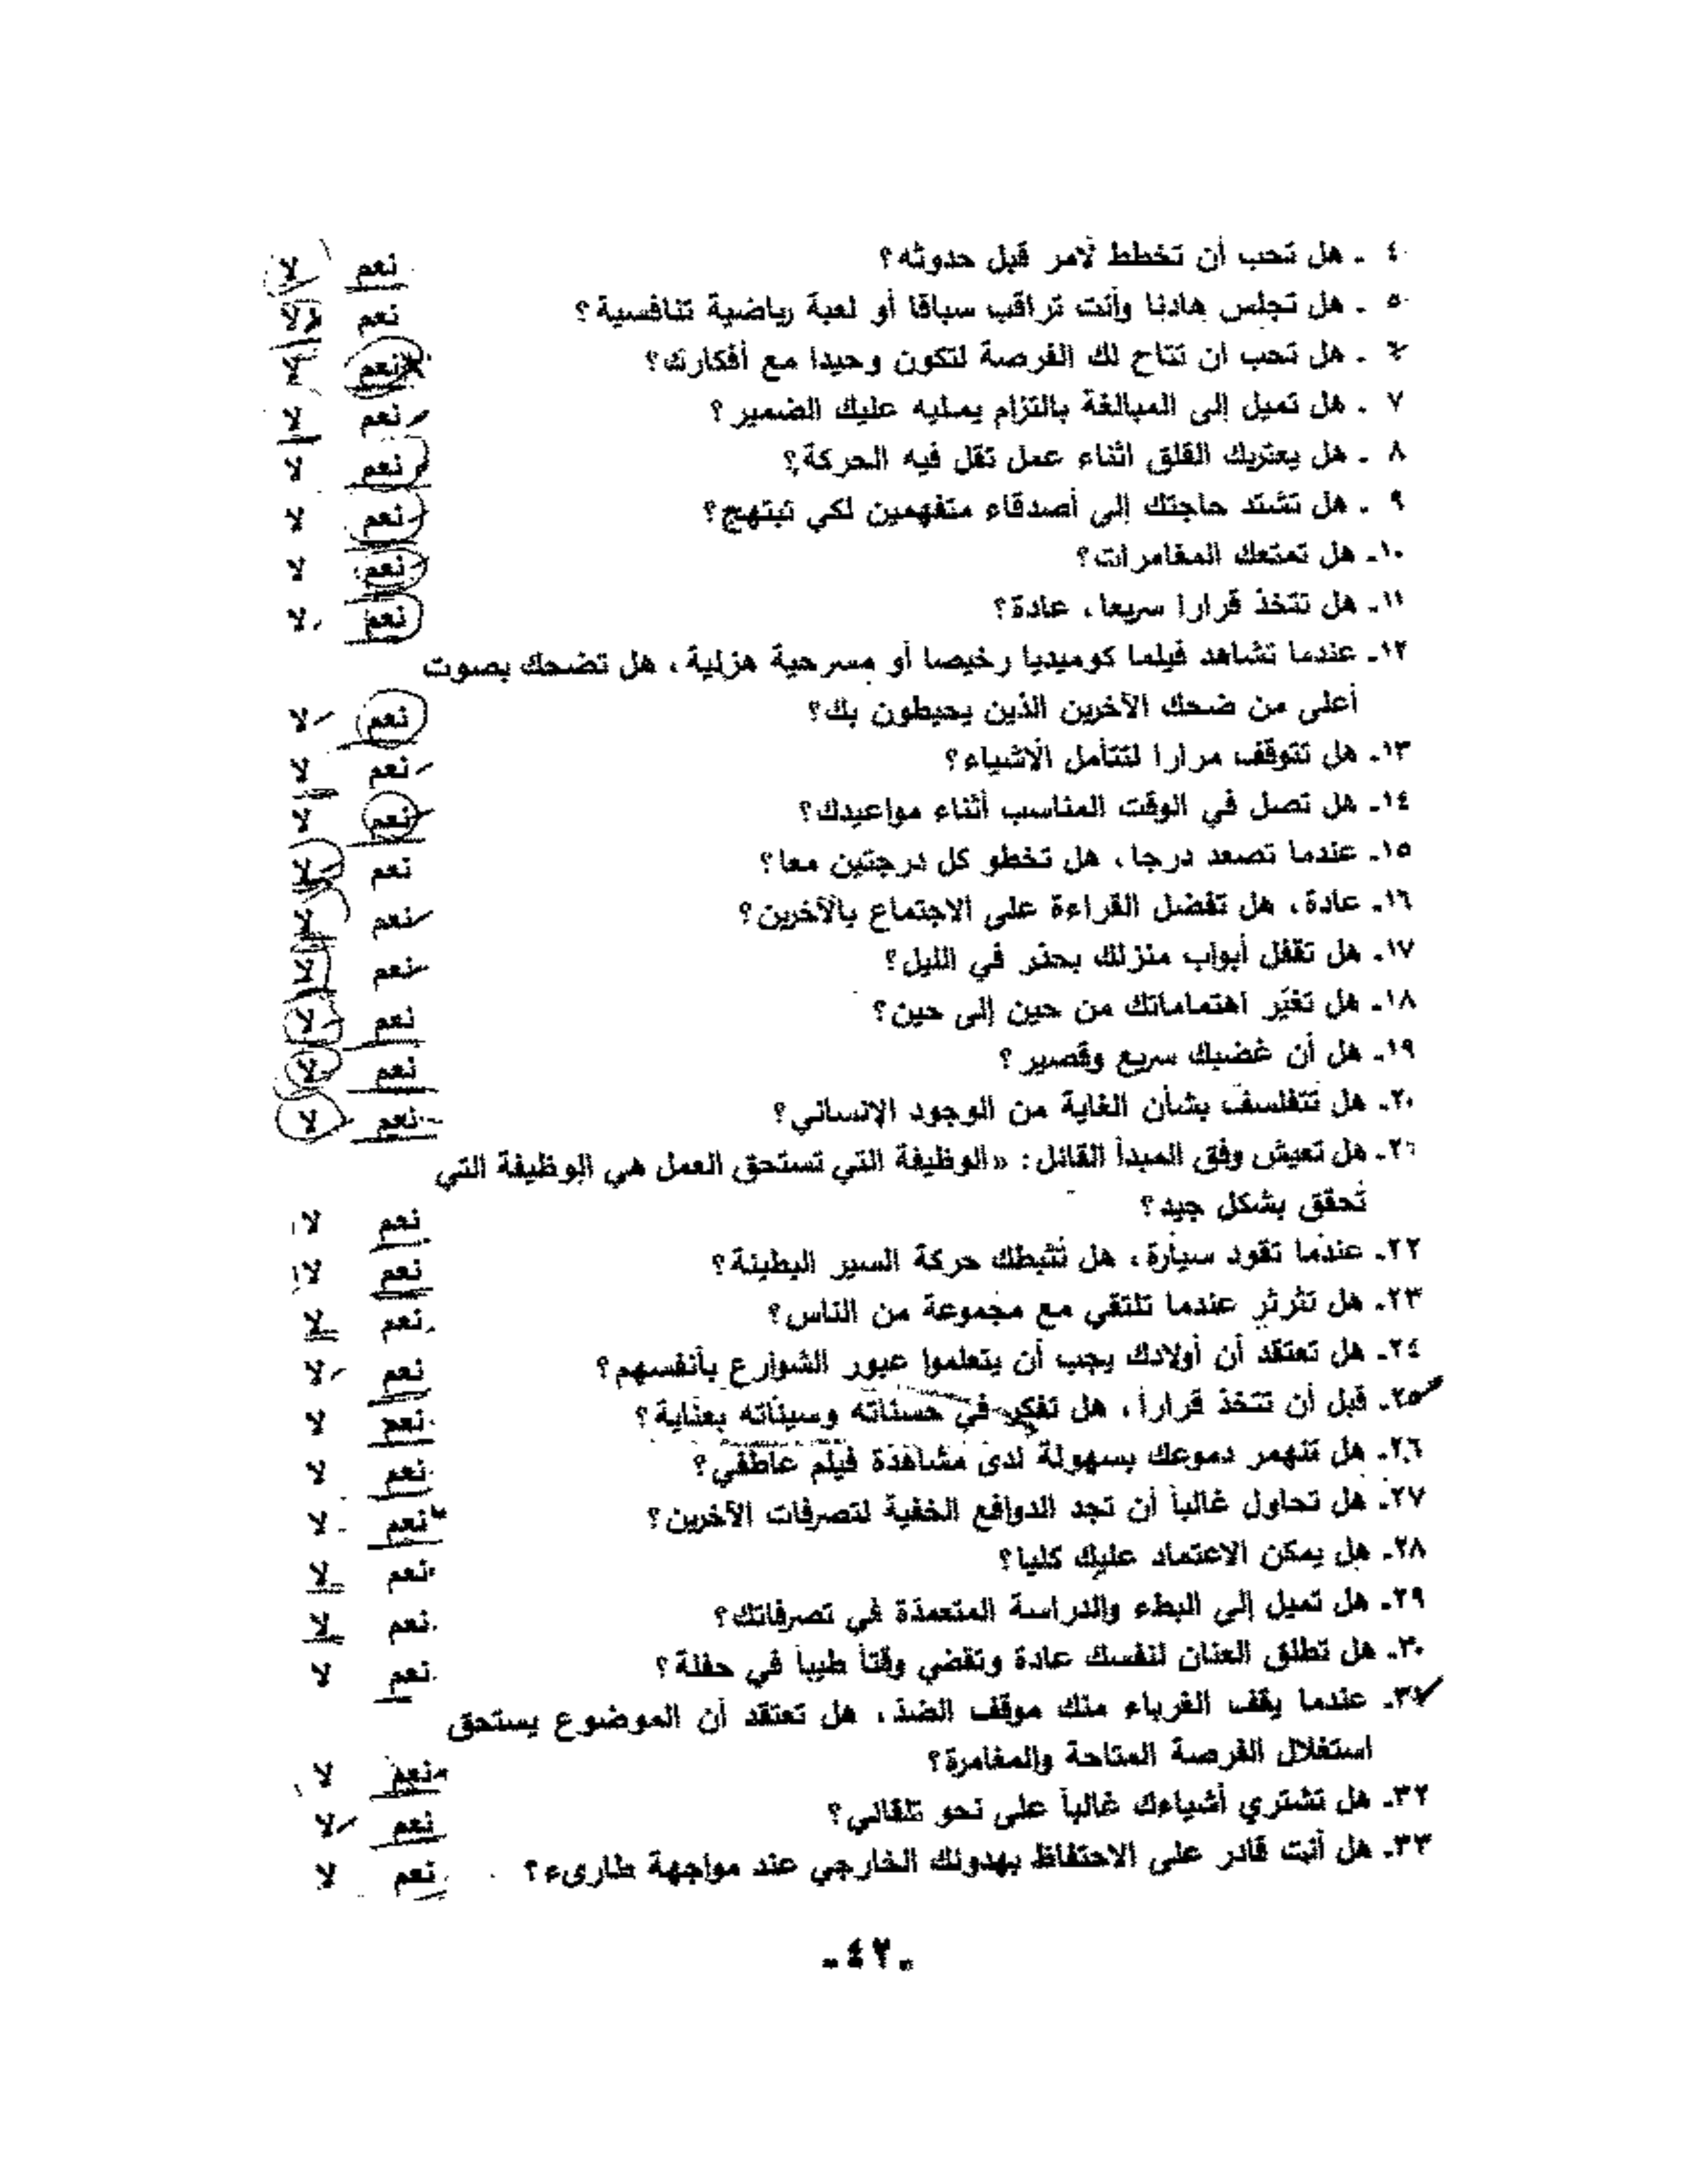 ٤ ـ هل تحب أن تخطط لأمر قبل حدوثه؟ نعم لا
٥ ـ هل تجلس هادئا وأنت تراقب سباقا أو لعبة رياضية تنافسية؟ نعم لا
٦ ـ هل تحب ان تتاح لك الفرصة لتكون وحيدا مع أفكارك؟ نعم لا
٧ ـ هل تميل إلى المبالغة بالتزام يمليه عليك الضمير؟ نعم لا
٨ ـ هل يعتريك القلق اثناء عمل تقل فيه الحركة؟ نعم لا
٩ ـ هل تشتد حاجتك إلى أصدقاء متفهمين لكي تبتهج؟ نعم لا
١٠ـ هل تمتعك المغامرات؟ نعم لا
١١ـ هل تتخذ قرارا سريعا، عادة؟ نعم لا
١٢ـ عندما تشاهد فيلما كوميديا رخيصا أو مسرحية هزلية، هل تضحك بصوت
أعلى من ضحك الآخرين الذين يحيطون بك؟ نعم لا
١٣ـ هل تتوقف مرارا لتتأمل الأشياء؟ نعم لا
١٤ـ هل تصل في الوقت المناسب أثناء مواعيدك؟ نعم لا
١٥ـ عندما تصعد درجا، هل تخطو كل درجتين معا؟ نعم لا
١٦ـ عادة، هل تفضل القراءة على الاجتماع بالآخرين؟ نعم لا
١٧ـ هل تقفل أبواب منزلك بحذر في الليل؟ نعم لا
١٨ـ هل تغيّر اهتماماتك من حين إلى حين؟ نعم لا
١٩ـ هل أن غضبك سريع وقصير؟ نعم لا
٢٠ـ هل تتفلسف بشأن الغاية من الوجود الإنساني؟ نعم لا
٢١ـ هل تعيش وفق المبدأ القائل: «الوظيفة التي تستحق العمل هي الوظيفة التي
تُحقق بشكل جيد؟ نعم لا
٢٢ـ عندما تقود سيارة، هل تُثبطك حركة السير البطيئة؟ نعم لا
٢٣ـ هل تثرثر عندما تلتقي مع مجموعة من الناس؟ نعم لا
٢٤ـ هل تعتقد أن أولادك يجب أن يتعلموا عبور الشوارع بأنفسهم؟ نعم لا
٢٥ـ قبل أن تتخذ قراراً، هل تفكر في حسناته وسيئاته بعناية؟ نعم لا
٢٦ـ هل تنهمر دموعك بسهولة لدى مشاهدة فيلم عاطفي؟ نعم لا
٢٧ـ هل تحاول غالباً أن تجد الدوافع الخفية لتصرفات الآخرين؟ نعم لا
٢٨ـ هل يمكن الاعتماد عليك كليا؟ نعم لا
٢٩ـ هل تميل إلى البطء والدراسة المتعمدة في تصرفاتك؟ نعم لا
٣٠ـ هل تطلق العنان لنفسك عادة وتقضي وقتاً طيباً في حفلة؟ نعم لا
٣١ـ عندما يقف الغرباء منك موقف الضدّ، هل تعتقد أن الموضوع يستحق
استغلال الفرصة المتاحة والمغامرة؟ نعم لا
٣٢ـ هل تشتري أشياءك غالباً على نحو تلقائي؟ نعم لا
٣٣ـ هل أنت قادر على الاحتفاظ بهدوئك الخارجي عند مواجهة طارىء؟ نعم لا
ـ٤٢ـ